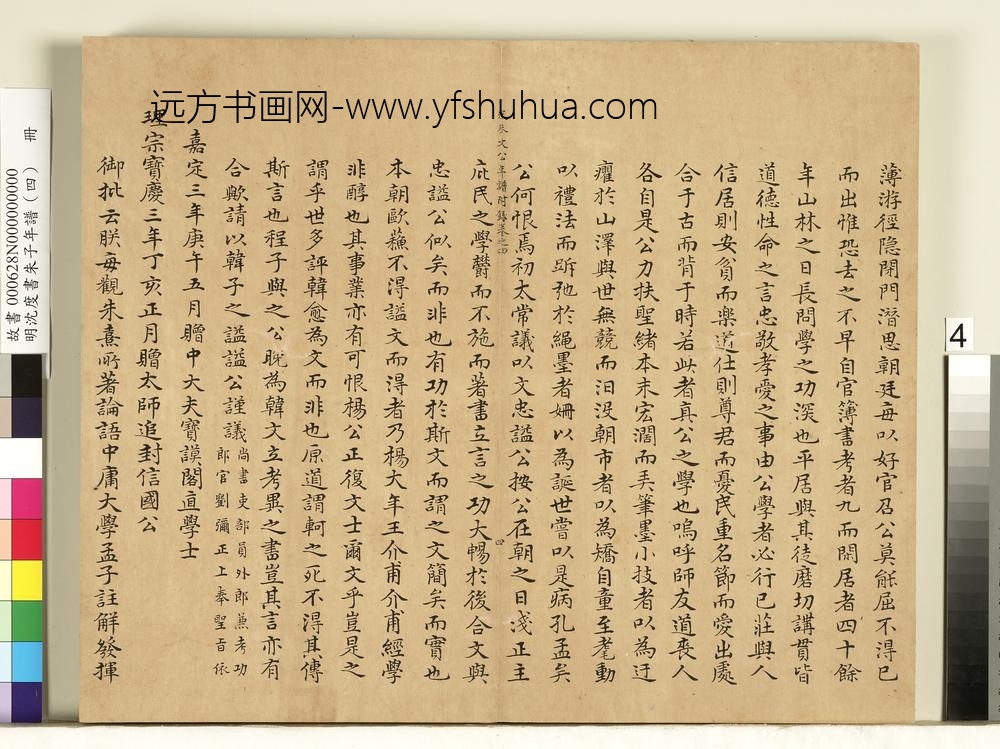 薄游徑隐閑門潛思朝廷每以好官召公莫能屈不得已
而出惟恐去之不早自官簿書考者九而閑居者四十餘
年山林之日長問學之功深也平居與其徒磨切講貫皆
道德性命之言忠敬孝愛之事由公學者必行已莊與人
信居則安貧而樂道仕則尊君而憂民重名節而愛出處
合于古而背于時若此者真公之學也嗚呼師友道喪人
各自是公力扶聖緒本末宏濶而弄筆墨小技者以為迂
癯於山澤與世無競而汩没朝市者以為矯自童至耄動
以禮法而跅弛於繩墨者姍以為誕世嘗以是病孔孟矣
公何恨焉初太常議以文忠謚公按公在朝之日淺正主
文公年譜附錄卷之四
四
庇民之學欝而不施而著書立言之功大暢於後合文與
忠謚公似矣而非也有功於斯文而謂之文簡矣而實也
本朝歐蘓不得謚文而得者乃楊大年王介甫介甫經學
非醇也其事業亦有可恨楊公正復文士爾文乎豈是之
謂乎世多評韓愈為文而非也原道謂軻之死不得其傳
斯言也程子與之公晚為韓文立考異之書豈其言亦有
合歟請以韓子之謚謚公謹議
尚書吏部員外郎兼考功
郎官劉彌正上奉聖旨依
嘉定三年庚午五月贈中大夫寶謨閣直學士
理宗寶慶三年丁亥正月贈太師追封信國公
御批云朕每觀朱熹所著論語中庸大學孟子註解發揮
远方书画网-www.yfshuhua.com
故書 000628N000000000
明沈度書朱子年譜(四) 冊
4